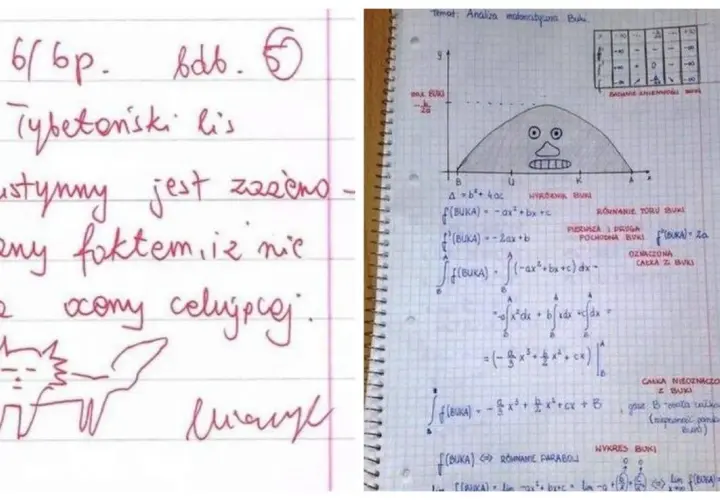 6/6p. bdb. 5
Tybetański lis
ustynny jest zaaćmo-
any faktem, iż nie
a oceny celującej.
Temat: Analiza matematyczna Buki.
y
MAX BUKI
-b/2a
BADANIE ZMIENNOŚCI BUKI
B U K A x
Δ = b² + 4ac WYRÓŻNIK BUKI
f(BUKA) = -ax² + bx + c RÓWNANIE TORU BUKI
f'(BUKA) = -2ax + b PIERWSZA I DRUGA POCHODNA BUKI f''(BUKA) = 2a
∫ f(BUKA) = ∫ (-ax² + bx + c) dx = OZNACZONA CAŁKA Z BUKI
= -a∫x²dx + b∫xdx + c∫dx =
= (-a/3 x³ + b/2 x² + cx) |
CAŁKA NIEOZNACZO
Z BUKI
∫ f(BUKA) = -a/3 x³ + b/2 x² + cx + B , gdzie B - stała całkow
WYKRES BUKI
f(BUKA) ⇔ RÓWNANIE PARABOLI
lim f(BUKA) = lim -ax² + bx + c = lim -a + b/x + c/x² ⇔ lim f(BUKA)